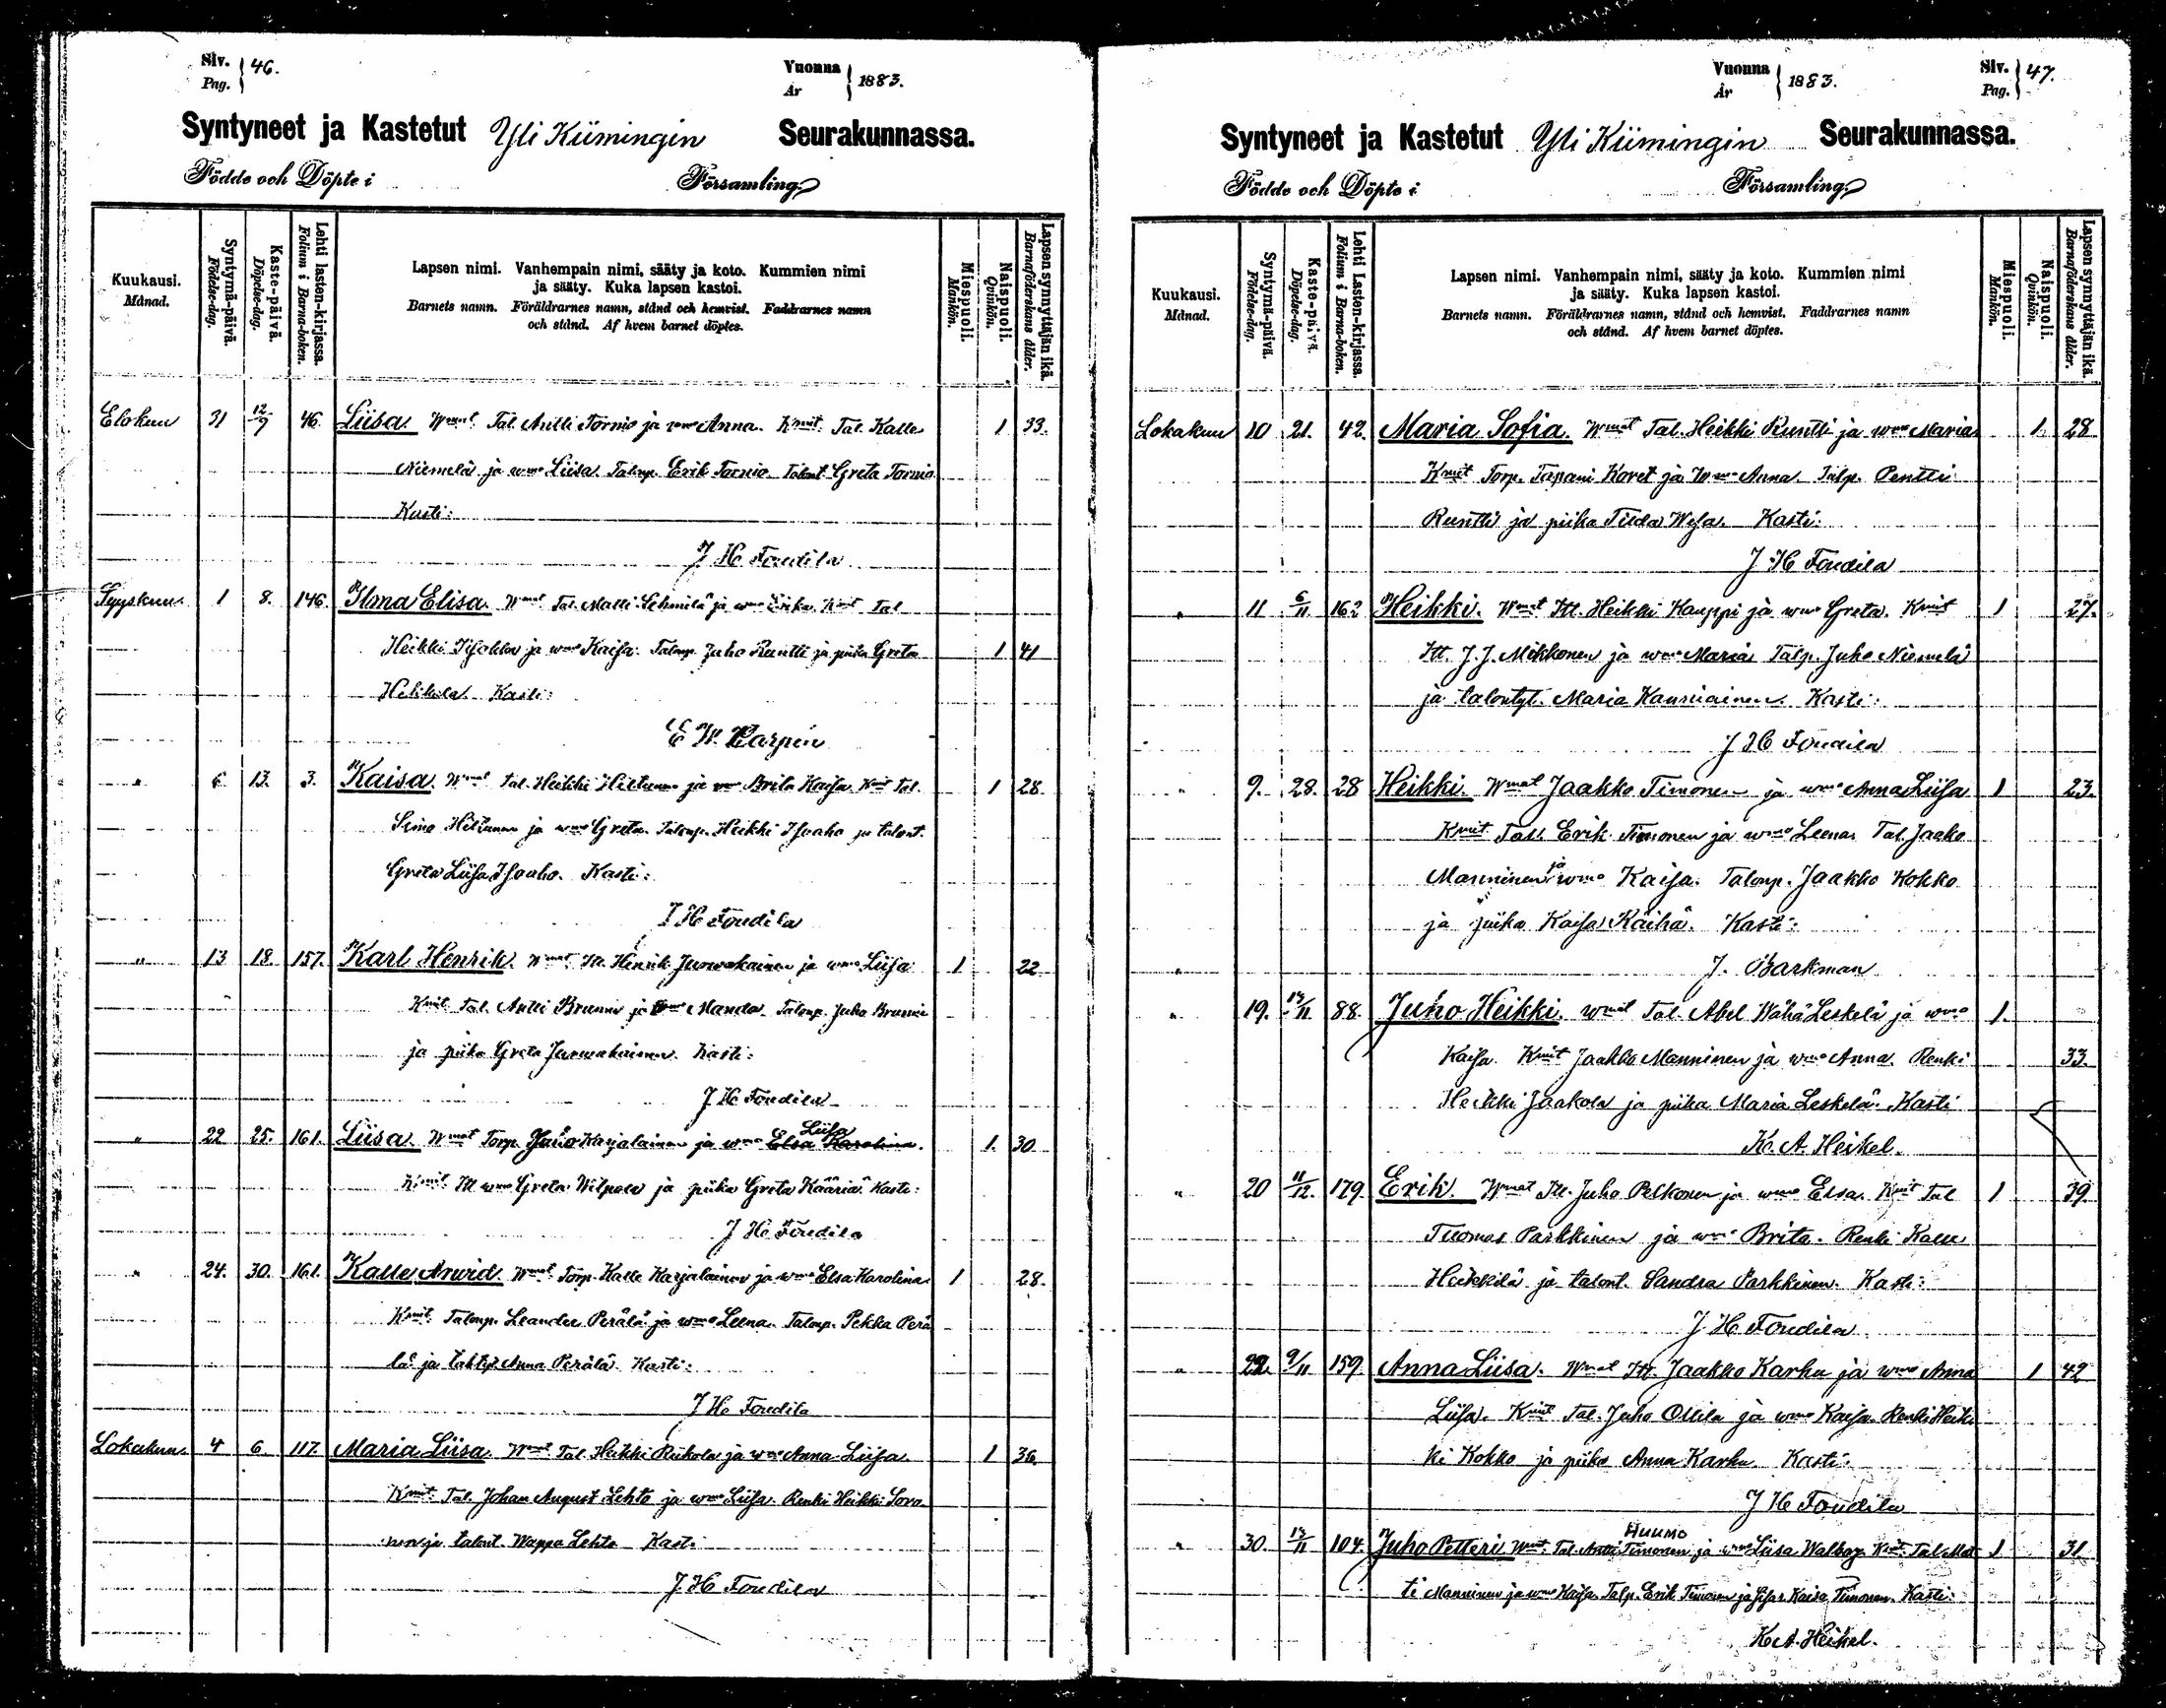 Siv. Pag. } 46.
Vuonna År } 1883.
Syntyneet ja Kastetut Yli Kiimingin Seurakunnassa.
Födde och Döpte i Församling
Kuukausi. Månad.
Syntymä-päivä. Födelse-dag.
Kaste-päivä. Döpelse-dag.
Lehti lasten-kirjassa. Folium i Barna-boken.
Lapsen nimi. Vanhempain nimi, sääty ja koto. Kummien nimi
ja sääty. Kuka lapsen kastoi.
Barnets namn. Föräldrarnes namn, stånd och hemvist. Faddrarnes namn
och stånd. Af hvem barnet döptes.
Miespuoli. Mankön.
Naispuoli. Qvinkön.
Lapsen synnyttäjän ikä. Barnaföderskans ålder.
Elokuu 31 12/9 46. Liisa. Wmat Tal. Antti Tornio ja wmo Anna. Kmit Tal. Kalle 1 33.
Niemelä ja wmo Liisa. Talonp. Erik Tornio. Talont. Greta Tornio.
Kasti:
J H Foudila
Syyskuu 1 8. 146. Ilma Elisa. Wmat Tal. Matti Lehmilä ja wmo Erika. Kmit Tal
Heikki ja wmo Kaisa. Talonp. Juho Runtti ja piika Greta 1 41
Heikkilä. Kasti:
E W
" 6 13. 3. Kaisa. Wmat Tal. Heikki Hiltunen ja wmo Brita Kaisa. Kmit Tal. 1 28.
Simo Hiltunen ja wmo Greta. Talonp. Heikki Isoaho ja talont.
Greta Liisa Isoaho. Kasti:
J H Foudila
" 13 18. 157. Karl Henrik. Wmat Itl. Henrik Jurwakainen ja wmo Liisa 1 22
Kmit Tal. Antti Bruuni ja wmo Manda. Talonp. Juho Bruuni
ja piika Greta Jurwakainen. Kasti:
J H Foudila
" 22 25. 161. Liisa. Wmat Torp. Juho Karjalainen ja wmo Elsa Karolina. 1. 30
Liisa
Kmit Itl wmo Greta ja piika Greta Kääriä. Kasti:
J H Foudila
" 24. 30. 161. Kalle Arwid. Wmat Torp. Kalle Karjalainen ja wmo Elsa Karolina. 1 28.
Kmit Talonp. Leander Perälä ja wmo Leena. Talonp. Pekka Perä
lä ja Anna Perälä. Kasti:
J H Foudila
Lokakuu 4 6. 117. Maria Liisa. Wmat Tal. Heikki Riikola ja wmo Anna Liisa. 1 36.
Kmit Tal. Johan August Lehto ja wmo Liisa. Renki Heikki Soro
nen ja talont. Wappu Lehto Kasti:
J H Foudila
Vuonna År } 1883.
Siv. Pag. } 47.
Syntyneet ja Kastetut Yli Kiimingin Seurakunnassa.
Födde och Döpte i Församling
Kuukausi. Månad.
Syntymä-päivä. Födelse-dag.
Kaste-päivä. Döpelse-dag.
Lehti Lasten-kirjassa. Folium i Barna-boken.
Lapsen nimi. Vanhempain nimi, sääty ja koto. Kummien nimi
ja sääty. Kuka lapsen kastoi.
Barnets namn. Föräldrarnes namn, stånd och hemvist. Faddrarnes namn
och stånd. Af hvem barnet döptes.
Miespuoli. Mankön.
Naispuoli. Qvinkön.
Lapsen synnyttäjän ikä. Barnaföderskans ålder.
Lokakuu 10 21. 42. Maria Sofia. Wmat Tal. Heikki Runtti ja wmo Maria 1. 28
Kmit Torp. Tapani Koret ja Wmo Anna. Talp. Pentti
Runtti ja piika Tilda Wesa. Kasti:
J H Foudila
" 11 6/11 162 Heikki. Wmat Itl. Heikki Kauppi ja wmo Greta. Kmit 1 27.
Itl. J. J. Mikkonen ja wmo Maria Talp. Juho Niemelä
ja talontyt. Maria Kauniainen. Kasti:
J H Foudila
" 9. 28. 28 Heikki. Wmat Jaakko Timonen ja wmo Anna Liisa 1 23.
Kmit Tal. Erik Timonen ja wmo Leena. Tal. Jaako
Manninen ja wmo Kaisa. Talonp. Jaakko Kokko
ja piika Kaisa Räihä. Kasti:
J. Barkman
" 19. 13/11 88. Juho Heikki. wmat Tal. Abel Wähä Leskelä ja wmo 1.
Kaisa. Kmit Jaakko Manninen ja wmo Anna. Renki 33.
Heikki Jaakola ja piika Maria Leskelä. Kasti
K. A. Heikel.
" 20 11/12. 179 Erik. Wmat Itl. Juho Pelkonen ja wmo Elsa. Kmit Tal 1 39.
Tuomas Parkkinen ja wmo Brita. Renki Kalle
Heikkilä ja talont. Sandra Parkkinen. Kasti:
J H Foudila
" 22. 9/11 159. Anna Liisa. Wmat Itl. Jaakko Karhu ja wmo Anna 1 42
Liisa. Kmit Tal. Juho Ollila ja wmo Kaisa. Renki Heik
ki Kokko ja piika Anna Karhu. Kasti:
J H Foudila
HUUMO
" 30. 13/11 104. Juho Petteri Wmat Tal. Antti Timonen ja wmo Liisa Walborg. Kmit Tal. Mat 1 31
ti Manninen ja wmo Kaisa. Talp. Erik Timonen ja Kaisa Timonen. Kasti:
K. A. Heikel.